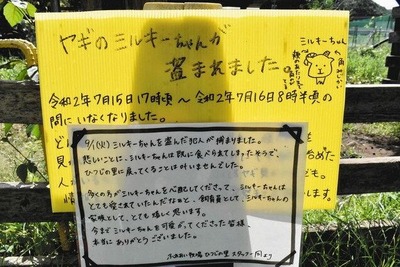 ヤギのミルキーちゃんが
盗まれました。
ミルキーちゃん
令和2年7月15日17時頃〜令和2年7月16日8時半頃の
間にいなくなりました。
9/1(火)ミルキーちゃんを盗んだ犯人が捕まりました。
悲しいことに、ミルキーちゃんは既に食べられてしまったそうで、
ひつじの里に戻ってくることはかないませんでした。
多くの方がミルキーちゃんを心配してくださって、ミルキーちゃんは
とても愛されていたんだなぁと、飼育員として、ミルキーちゃんの
家族として、とても嬉しく思います。
今までミルキーちゃんを可愛がってくださった皆様、
本当にありがとうございました。
ふれあい牧場 ひつじの里 スタッフ一同より